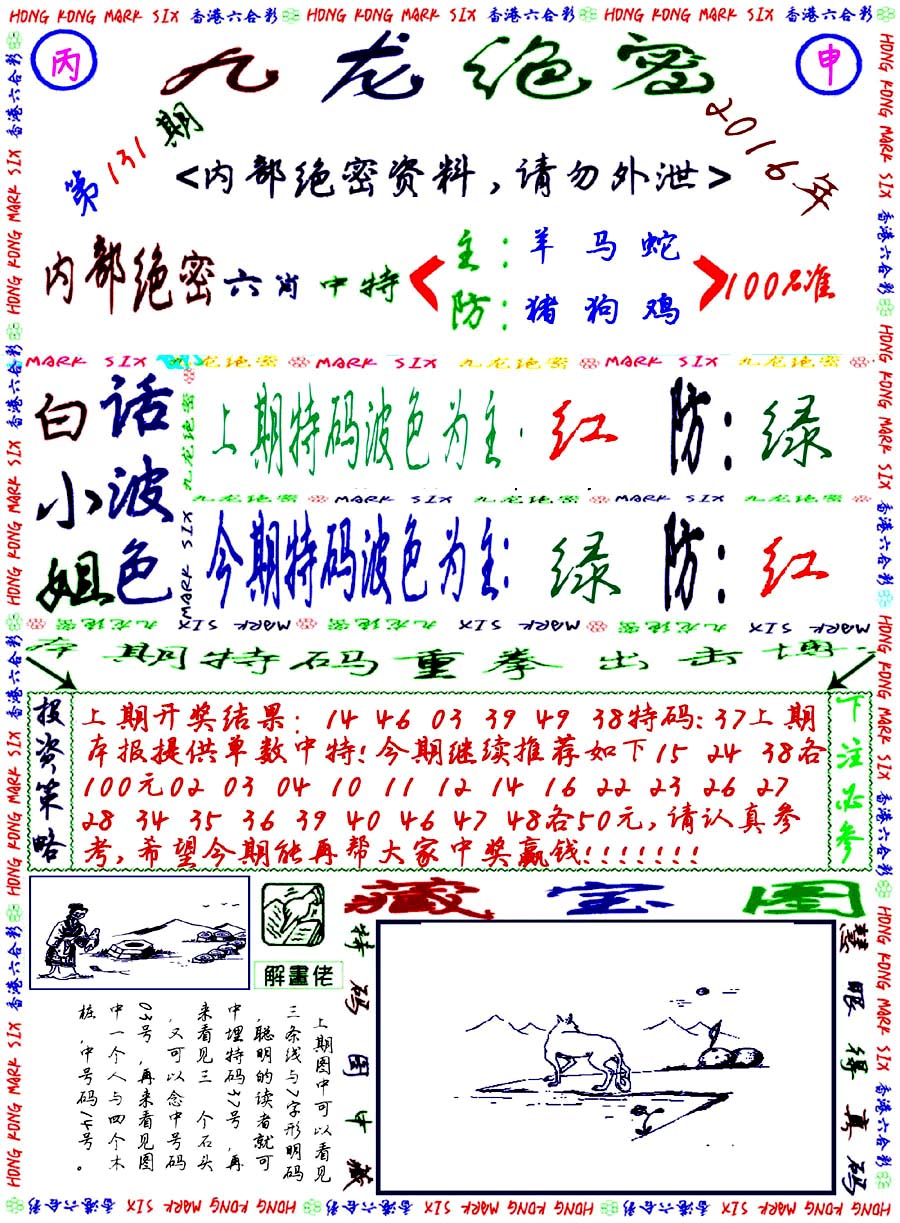 HONG KONG MARK SIX 香港六合彩 HONG KONG MARK SIX 香港六合彩 HONG KONG MARK SIX 香港六合彩
丙 九龙绝密 申
第131期
2016年
<内部绝密资料,请勿外泄>
内部绝密六肖中特
主:羊马蛇
防:猪狗鸡
100%准
MARK SIX 九龙绝密 MARK SIX 九龙绝密 MARK SIX 九龙绝密
白话小姐
波色
上期特码波色为主:红 防:绿
九龙绝密 MARK SIX 九龙绝密 MARK SIX 九龙绝密
今期特码波色为主:绿 防:红
MARK SIX 九龙绝密 MARK SIX 九龙绝密 MARK SIX 九龙绝密 MARK SIX
本期特码重拳出击博
投资策略
上期开奖结果: 14 46 03 39 49 38特码:37上期
本报提供单数中特!今期继续推荐如下15 24 38各
100元02 03 04 10 11 12 14 16 22 23 26 27
28 34 35 36 39 40 46 47 48各50元,请认真参
考,希望今期能再帮大家中奖赢钱!!!!!!!
下注必参
解畫佬
藏宝图
特码图中藏
慧眼得真码
上期图中可以看见
三条线与7字形明码
,聪明的读者就可
中埋特码37号,再
来看见三个石头
,又可以念中号码
03号,再来看见图
中一个人与四个木
桩,中号码14号。
HONG KONG MARK SIX 香港六合彩 HONG KONG MARK SIX 香港六合彩 HONG KONG MARK SIX 香港六合彩